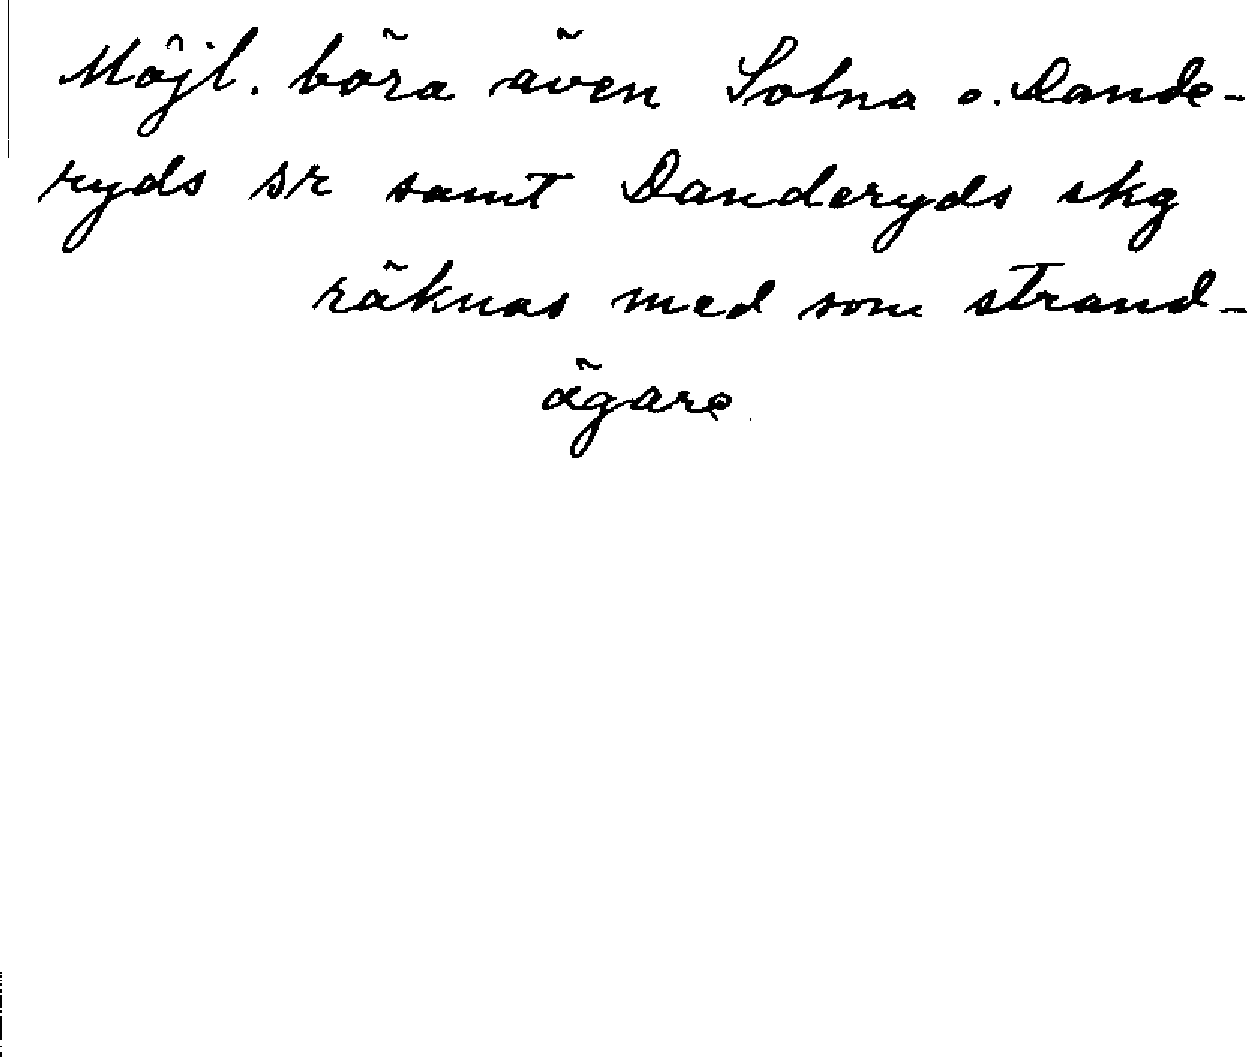 Möjl. böra även Solna o. Dande-
ryds sr samt Danderyds skg
räknas med som strand-
ägare